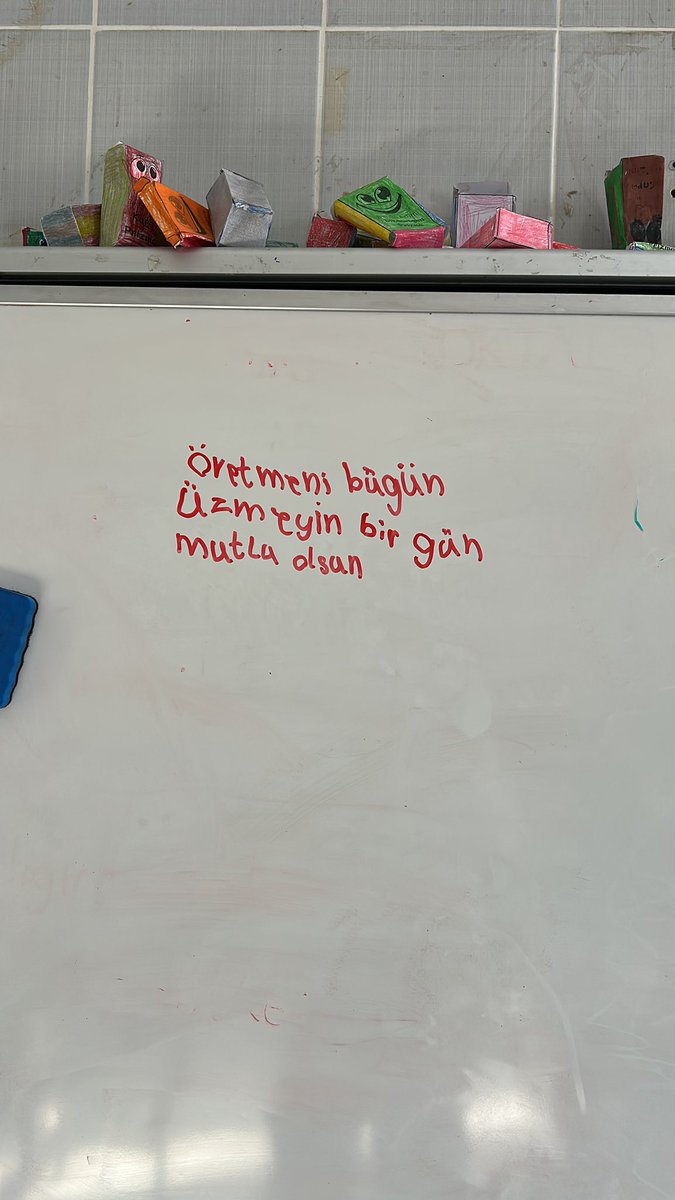 Öretmeni bügün
Üzmeyin bir gün
mutla olsun